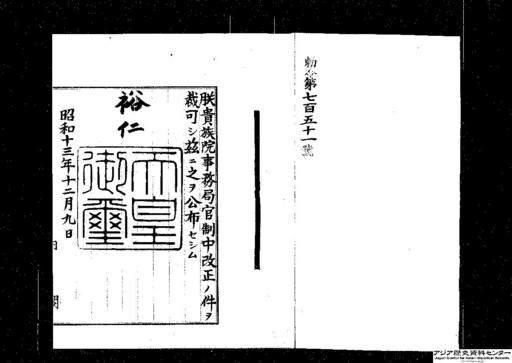 勅令第七百五十一號
朕貴族院事務局官制中改正ノ件ヲ
裁可シ茲ニ之ヲ公布セシム
裕仁
天皇御璽
昭和十三年十二月九日
アジア歴史資料センター
Japan Center for Asian Historical Records